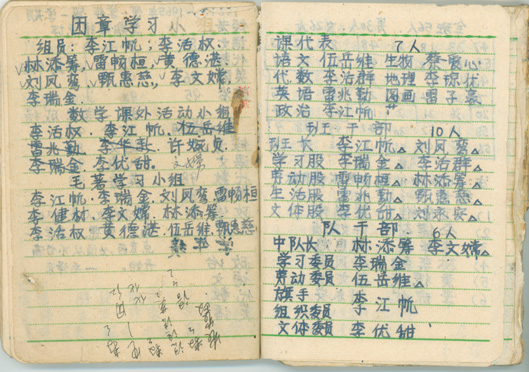 因章学习小
组员：李江帆，李活权．
林添筹，雷畅桓，黄德湛
刘凤鸾，甄惠慈，李文嫦．
李瑞金．
数学课外活动小组
李活权．李江帆．伍岳维
雷兆勤．李华
李瑞金．李优甜．
毛著学习小组
李江帆．李瑞金．刘凤鸾．雷畅桓
李健林．李文嫦．林添筹．
李活权．黄德湛．伍岳维．甄惠慈
课代表 7人
语文 伍岳维 生物
代数 李洁群 地理 李琼优
英语 雷兆勤 图画
政治 李江帆．
班干部 10人
班长 李江帆△ 刘凤鸾△
学习股 李瑞金△ 李洁群△
劳动股 雷畅桓△ 林添筹△
生活股 雷兆勤△ 甄惠慈△
文体股 李优甜△ 刘永
队干部 6人
中队长 林添筹 李文嫦△
学习委员 李瑞金
劳动委员 伍岳维△
旗手 李江帆
组织委员
文体委员 李优甜